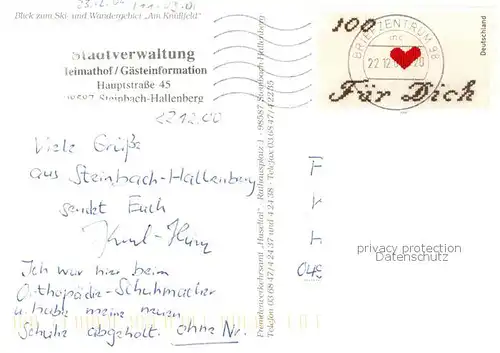 Blick zum Ski- und Wandergebiet "Am Knüllfeld"
Stadtverwaltung
Heimathof / Gästeinformation
Hauptstraße 45
Steinbach-Hallenberg
22.12.00
Viele Grüße
aus Steinbach-Hallenberg
sendet Euch
Ich war hier beim
Orthopädie-Schuhmacher
u. habe meine neuen
Schuhe abgeholt. ohne Nr.
Fremdenverkehrsamt „Haseltal“ · Rathausplatz 1 · 98587 Steinbach-Hallenberg
Telefon 03 68 47 / 4 24 37 und 4 24 38 · Telefax 03 68 47 / 4 22 35
100
Deutschland
BRIEFZENTRUM 98
mc
22.12
20
Für Dich
privacy protection
Datenschutz